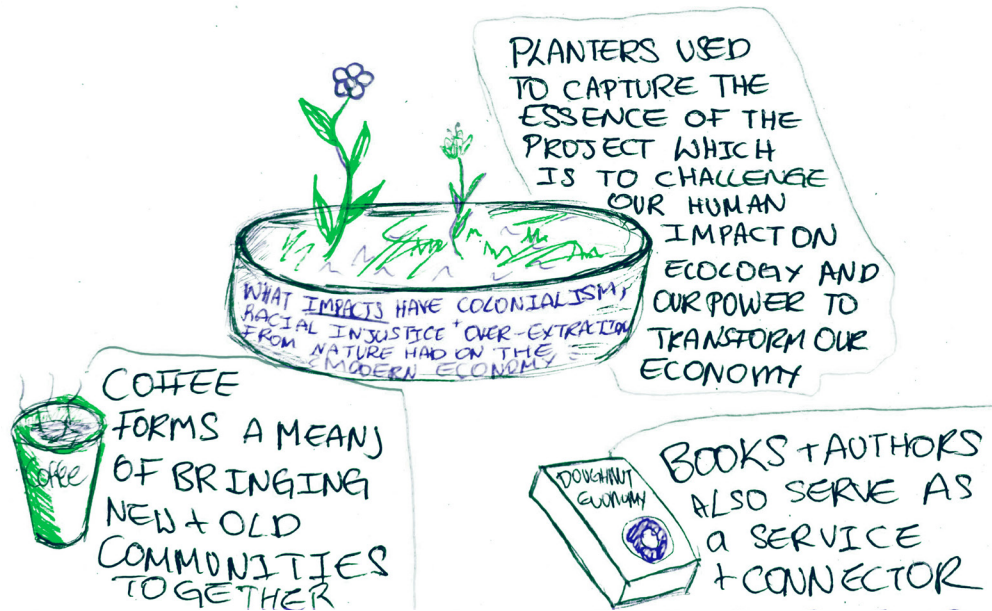 PLANTERS USED
TO CAPTURE THE
ESSENCE OF THE
PROJECT WHICH
IS TO CHALLENGE
OUR HUMAN
IMPACT ON
ECOLOGY AND
OUR POWER TO
TRANSFORM OUR
ECONOMY
WHAT IMPACTS HAVE COLONIALISM,
RACIAL INJUSTICE + OVER-EXTRACTION
FROM NATURE HAD ON THE
MODERN ECONOMY
COFFEE
FORMS A MEANS
OF BRINGING
NEW + OLD
COMMUNITIES
TOGETHER
Coffee
DOUGHNUT
ECONOMY
BOOKS + AUTHORS
ALSO SERVE AS
a SERVICE
+ CONNECTOR